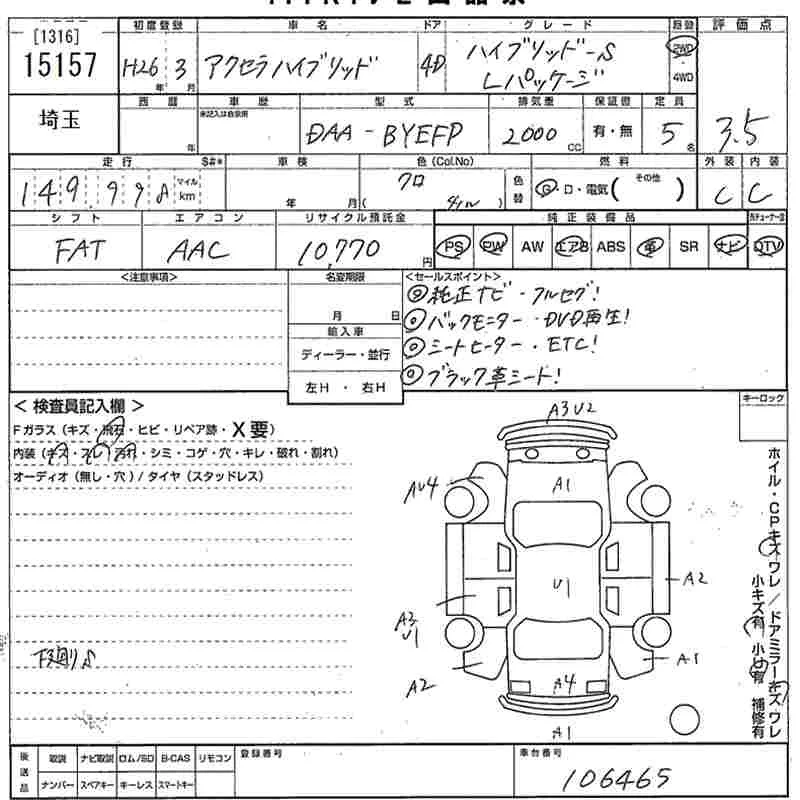 [1316]
15157
埼玉
初度登録
H26年3月
車名
アクセラハイブリッド
ドア
4D
グレード
ハイブリッド-S
Lパッケージ
2WD
4WD
評価点
3.5
西暦
年
車歴
未記入は自家用
型式
DAA-BYEFP
排気量
2000cc
保証書
有・無
定員
5名
走行
S#*
149,998
マイル
km
車検
年 月
色(Col.No)
クロ
( )
色替
燃料
G・D・電気( その他 )
外装
C
内装
C
シフト
FAT
エアコン
AAC
リサイクル預託金
10,770円
純正装備品
PS PW AW エアB ABS 革 SR ナビ DTV
<注意事項>
名変期限
月 日
輸入車
ディーラー・並行
左H・右H
<セールスポイント>
◎純正ナビ・フルセグ!
◎バックモニター・DVD再生!
◎シートヒーター・ETC!
◎ブラック革シート!
<検査員記入欄>
Fガラス(キズ・飛石・ヒビ・リペア跡・X要)
内装(キズ・スレ・汚れ・シミ・コゲ・穴・キレ・破れ・割れ)
オーディオ(無し・穴)/タイヤ(スタッドレス)
下廻りS
キーロック
A3 U2
A1
AU4
U1
A2
A3
U1
A1
A2
A4
A1
ホイル・CPキズワレ/ドアミラーキズワレ
小キズ有 小凹有 補修有
後送品
取説 ナビ取説 ロム/SD B-CAS リモコン
ナンバー スペアキー キーレス スマートキー
登録番号
車台番号
106465